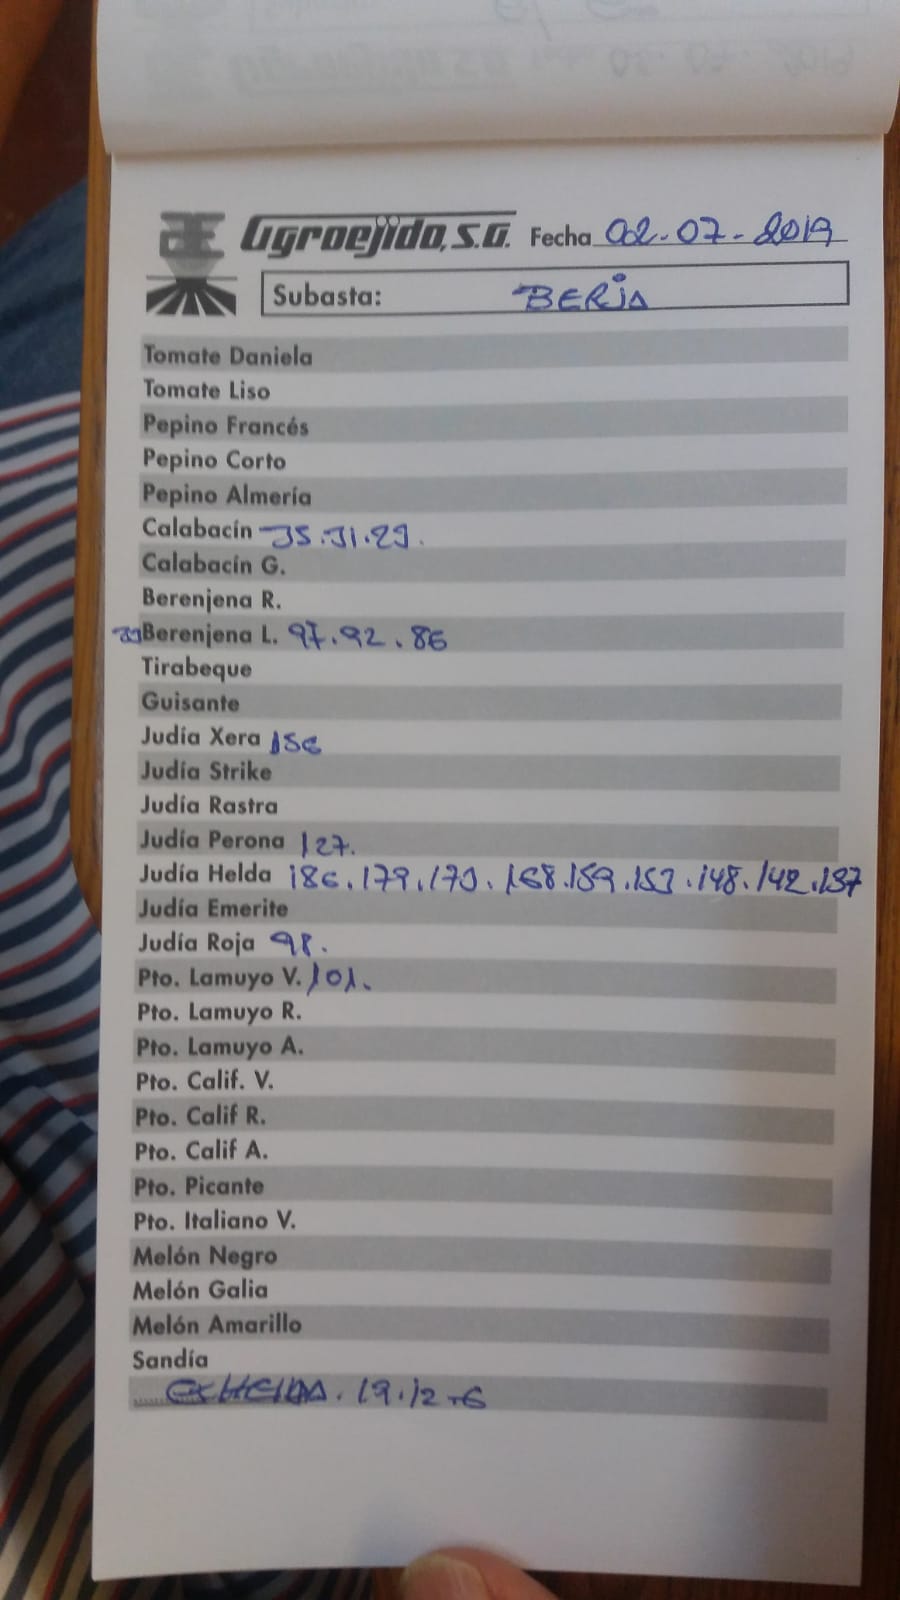 Agroejido, S.A. Fecha 02-07-2019
Subasta: BERJA
Tomate Daniela
Tomate Liso
Pepino Francés
Pepino Corto
Pepino Almería
Calabacín 35.31.29.
Calabacín G.
Berenjena R.
Berenjena L. 97.92.86
Tirabeque
Guisante
Judía Xera 156
Judía Strike
Judía Rastra
Judía Perona 127.
Judía Helda 186.179.173.168.159.153.148.142.137
Judía Emerite
Judía Roja 98.
Pto. Lamuyo V. 101.
Pto. Lamuyo R.
Pto. Lamuyo A.
Pto. Calif. V.
Pto. Calif R.
Pto. Calif A.
Pto. Picante
Pto. Italiano V.
Melón Negro
Melón Galia
Melón Amarillo
Sandía